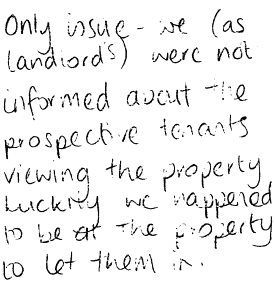 Only issue - we (as
landlord's) were not
informed about the
prospective tenants
viewing the property
Luckily we happened
to be at the property
to let them in.